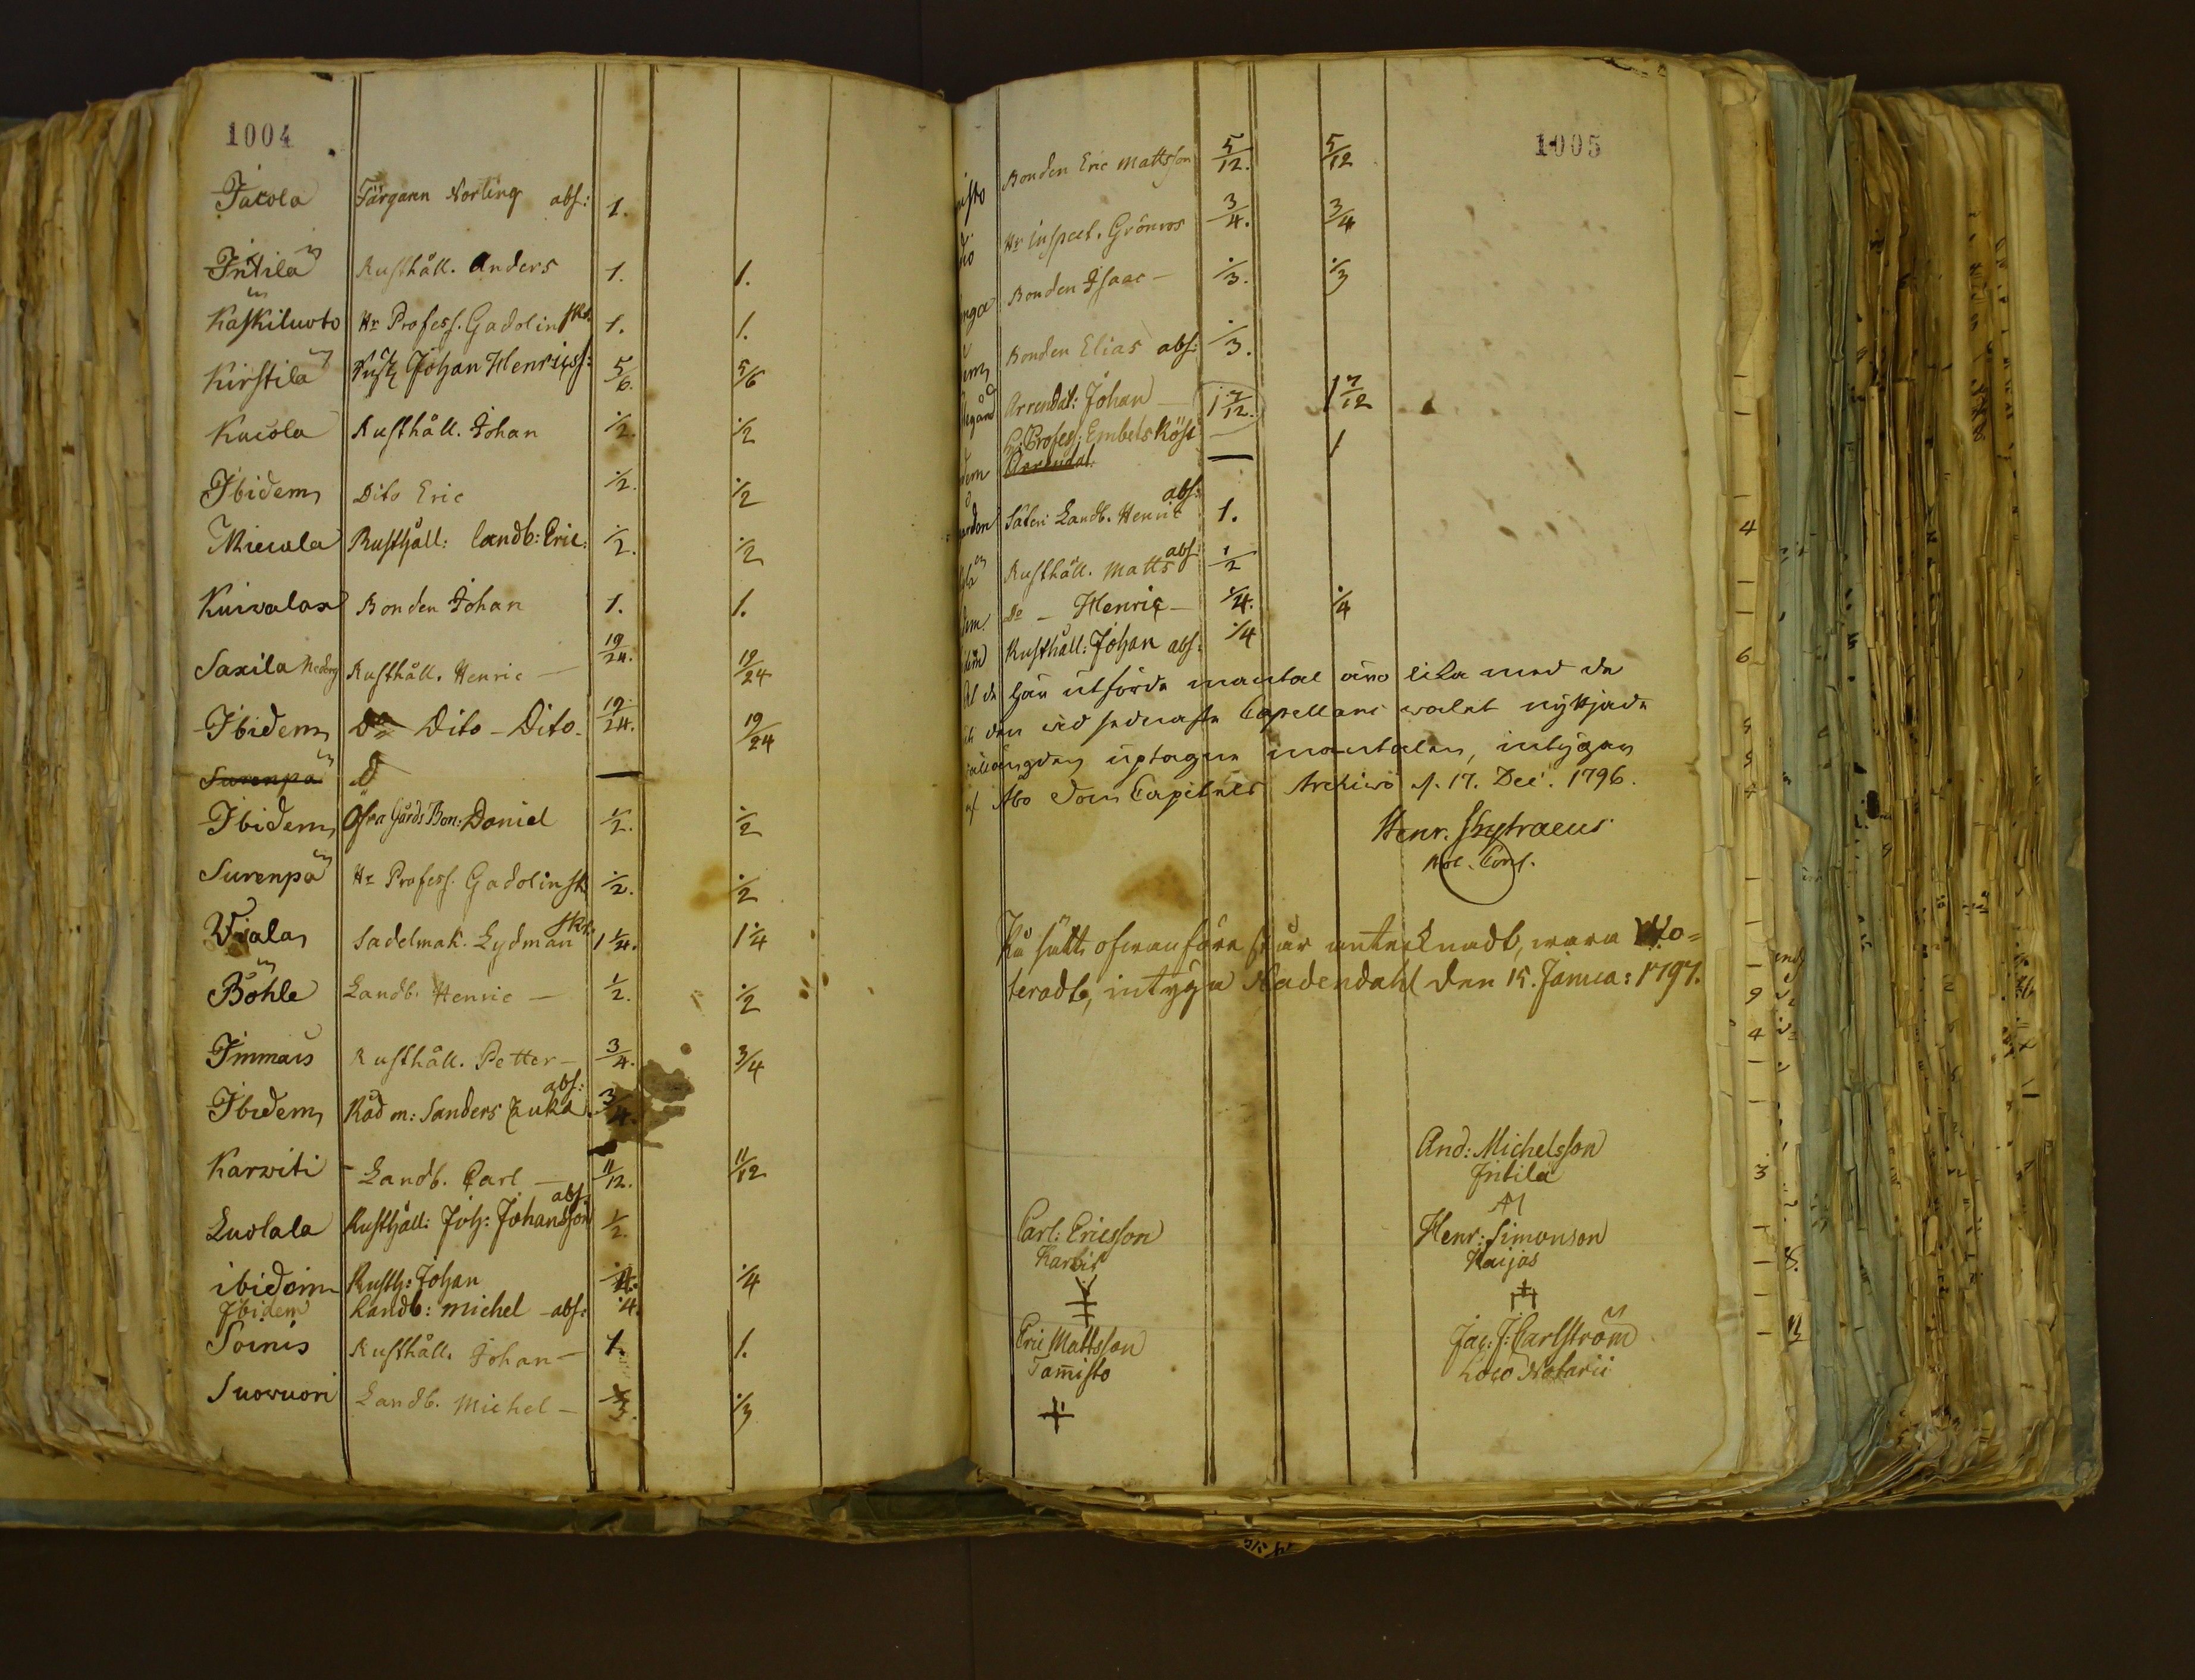 1004
Jacola Färgaren Norling abs: 1.
Intilä Rusthåll. Anders 1. 1.
Kaskiluoto Hr Profess. Gadolin skr. 1. 1.
Kirstilä Rusth Johan Henricss: 5/6. 5/6
Kucola Rusthåll. Johan 1/2. 1/2
Ibidem Dito Eric 1/2. 1/2
Miecola Rusthåll: landb: Eric: 1/2. 1/2
Kuivalax Bonden Johan 1. 1.
Saxila Nederg Rusthåll. Henric — 19/24. 19/24
Ibidem Do Dito - Dito - 19/24. 19/24
Surenpä —
Ibidem Öfra Gårds Bon: Daniel 1/2. 1/2
Surenpä Hr Profess. Gadolin sk 1/2. 1/2
Viala Sadelmak. Lydman skr. 1 1/4. 1 1/4
Böhle Landb. Henric — 1/2. 1/2
Immais Rusthåll. Petter — 3/4. 3/4
Ibidem Rådm: Sanders Enka abs: 3/4.
Karviti - Landb. Carl — 11/12. 11/12
Luolala Rusthåll: Joh: Johansson abs: 1/2.
ibidem Rusth: Johan 1/4. 1/4
Ibidem Landb: Michel - abs: 1/4.
Soinis Rusthåll. Johan — 1. 1.
Suovuori Landb. Michel — 1/3. 1/3
1005
misto Bonden Eric Mattsson 5/12. 5/12
Hr Inspect. Grönroos 3/4. 3/4
Bonden Isaac — 1/3. 1/3
Bonden Elias abs: 1/3.
Arrendat: Johan — 1 7/12. 1 7/12
Hr Profess: Embets Röst — 1
dem Arrendat. —
garden Säteri Landb. Henric abs: 1.
Rusthåll. Matts abs: 1/2
dem. Do — Henric — 1/4. 1/4
Rusthåll: Johan abs: 1/4
At de här utförde mantal äro lika med de
den vid sednaste Capellans valet nyttjade
längden uptagne mantalen, intygar
Åbo Dom Capitels Archivo d. 17. Dec: 1796.
Henr. Skytraeus
Not. Cons.
På sätt ofvanföre står antecknadt, vara Vo=
teradt, intyga Nadendahl den 15. Janua: 1797.
And: Michelsson
Intilä
AM
Carl: Ericsson
Karvis
Henr: Simonson
Haijas
Eric Mattsson
Tam̄isto
Jac: J: Carlström
Loco Notarii